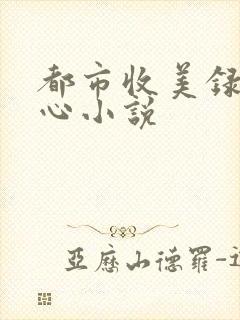 都市收美録
心小說
亞歷山德羅-